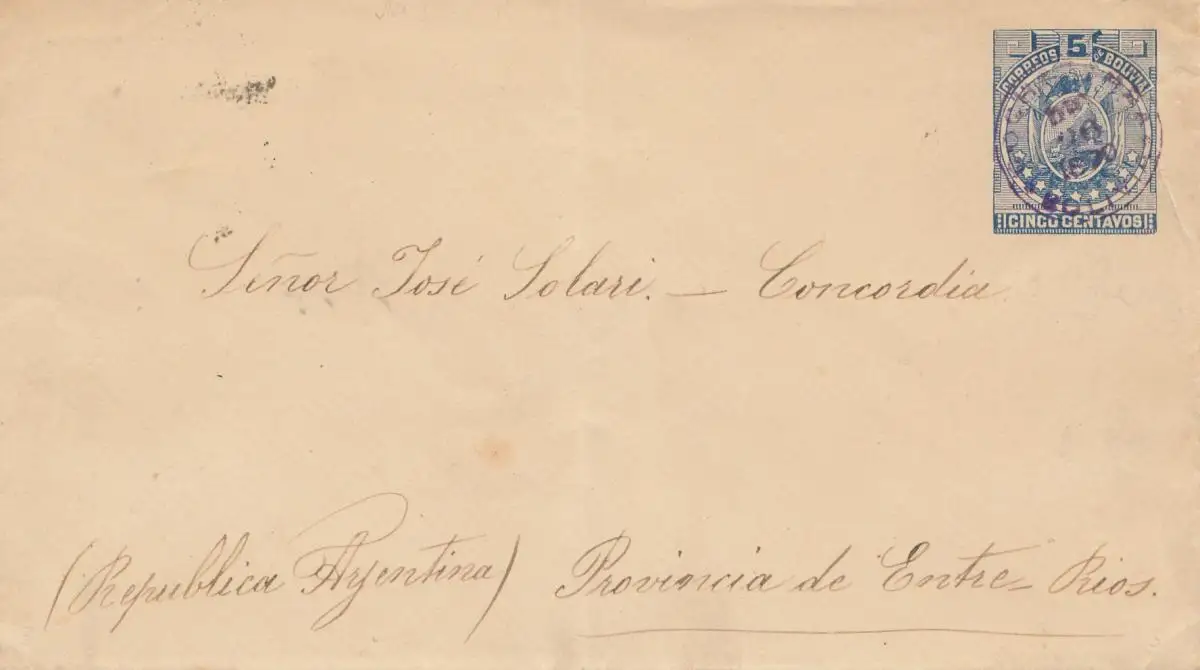 5
CORREOS DE BOLIVIA
CINCO CENTAVOS
BOLIVIA
Señor José Solari. — Concordia
(Republica Argentina) Provincia de Entre-Rios.